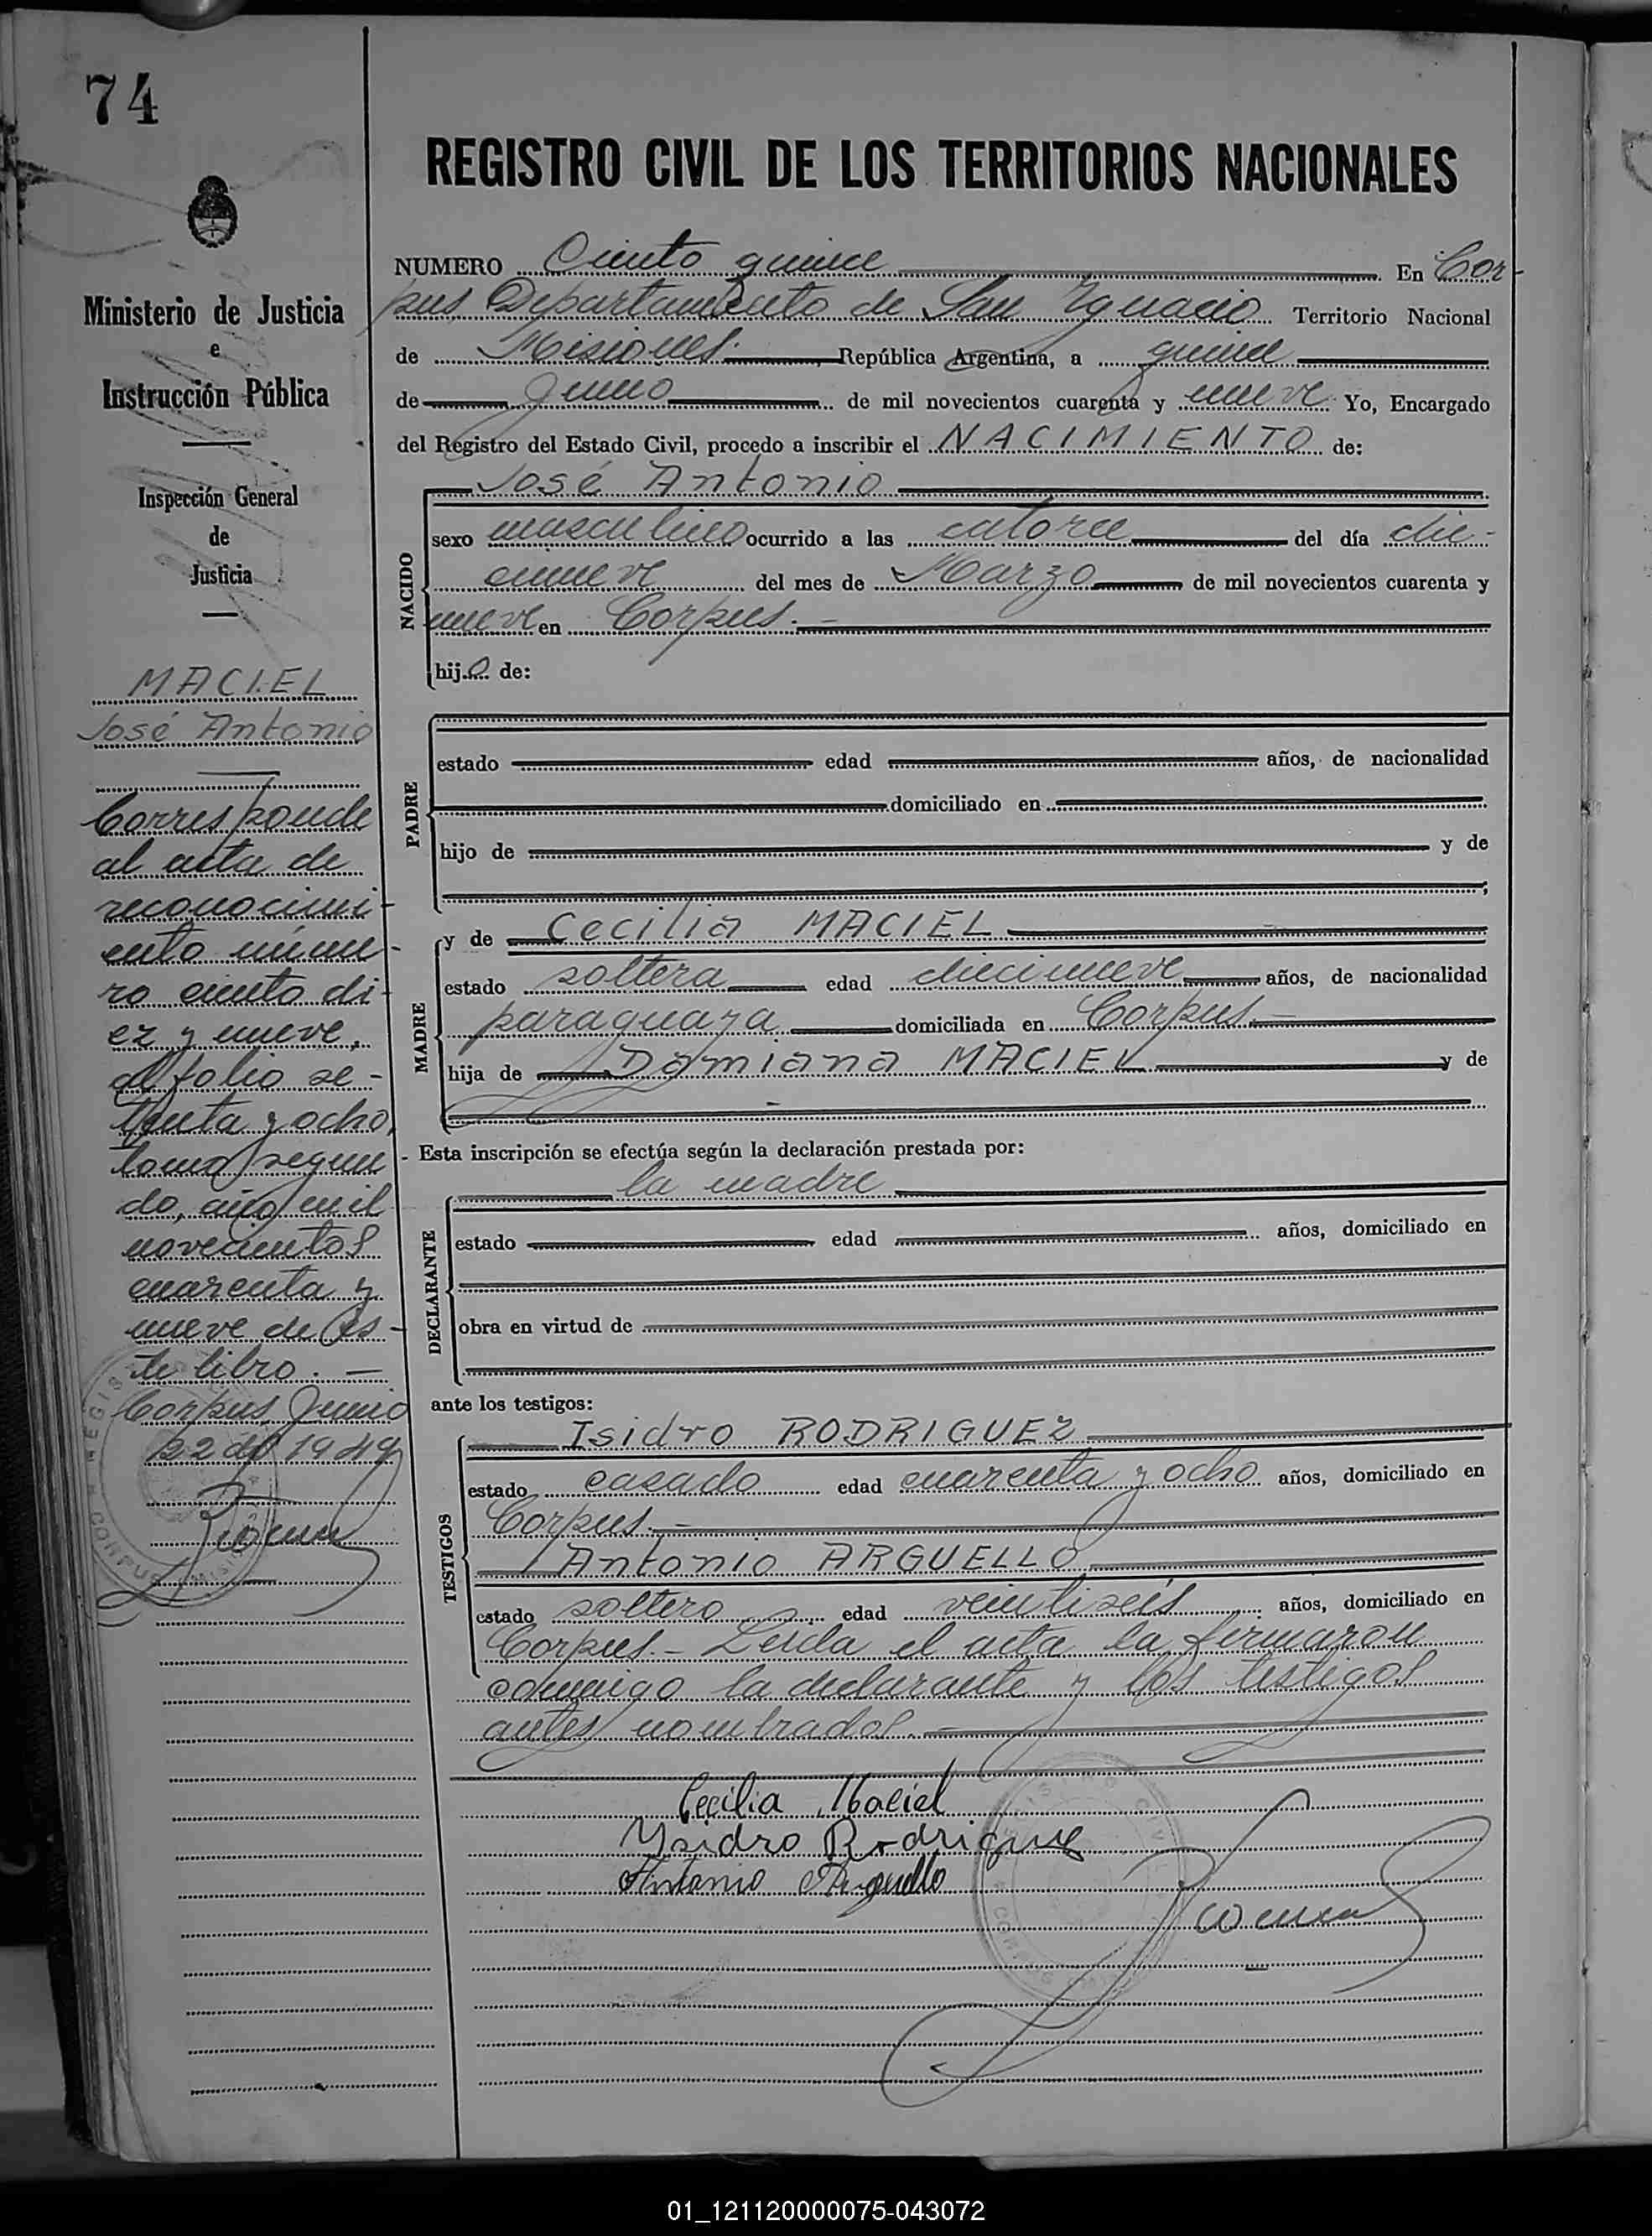 74
REGISTRO CIVIL DE LOS TERRITORIOS NACIONALES
Ministerio de Justicia
e
Instrucción Pública
Inspección General
de
Justicia
MACIEL
José Antonio
Corresponde
al acta de
reconocimi-
ento núme-
ro ciento di-
ez y nueve,
al folio se-
tenta y ocho,
tomo segun
do, año mil
novecientos
cuarenta y
nueve de es-
te libro. —
Corpus, Junio
22 de 1949
NUMERO Ciento quince En Cor-
pus Departamento de San Ygnacio Territorio Nacional
de Misiones. República Argentina, a quince
de Junio de mil novecientos cuarenta y nueve Yo, Encargado
del Registro del Estado Civil, procedo a inscribir el NACIMIENTO de:
José Antonio
NACIDO
sexo masculino ocurrido a las catorce del día die-
cinueve del mes de Marzo de mil novecientos cuarenta y
nueve en Corpus. —
hijo de:
PADRE
estado edad años, de nacionalidad
domiciliado en
hijo de y de
;
MADRE
y de Cecilia MACIEL
estado soltera edad diecinueve años, de nacionalidad
paraguaya domiciliada en Corpus. —
hija de Damiana MACIEL y de
- Esta inscripción se efectúa según la declaración prestada por:
la madre
DECLARANTE
estado edad años, domiciliado en
obra en virtud de
ante los testigos:
TESTIGOS
Isidro RODRIGUEZ
estado casado edad cuarenta y ocho años, domiciliado en
Corpus. —
Antonio ARGUELLO
estado soltero edad veintiseis años, domiciliado en
Corpus. - Leida el acta la firmaron
conmigo la declarante y los testigos
antes nombrados. —
Cecilia Maciel
Ysidro Rodriguez
Antonio Arguello
01_121120000075-043072